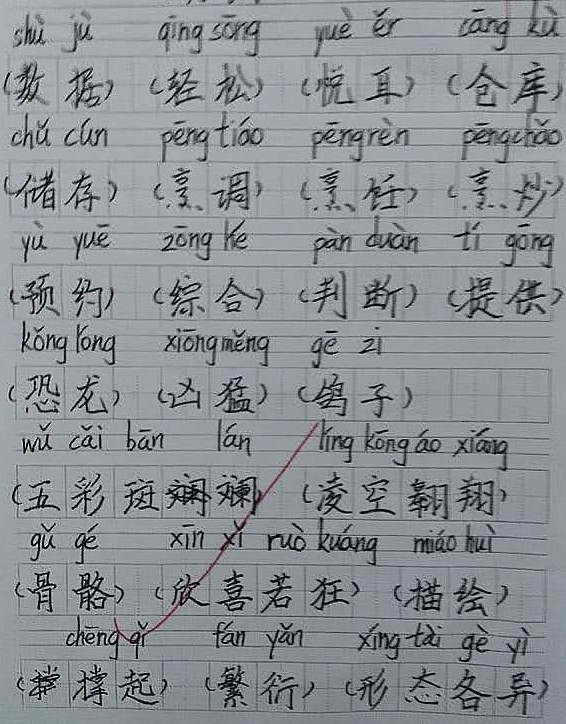 shù jù qīng sōng yuè ěr cāng kù
(数据) (轻松) (悦耳) (仓库)
chǔ cún pēng tiáo pēng rèn pēng chǎo
(储存) (烹调) (烹饪) (烹炒)
yù yuē zōng hé pàn duàn tí gōng
(预约) (综合) (判断) (提供)
kǒng lóng xiōng měng gē zi
(恐龙) (凶猛) (鸽子)
wǔ cǎi bān lán líng kōng áo xiáng
(五彩斑斓) (凌空翱翔)
gǔ gé xīn xǐ ruò kuáng miáo huì
(骨骼) (欣喜若狂) (描绘)
chēng qǐ fán yǎn xíng tài gè yì
(撑起) (繁衍) (形态各异)